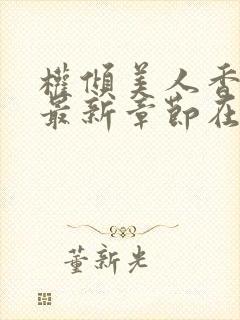 權傾美人香
最新章節在
董新光